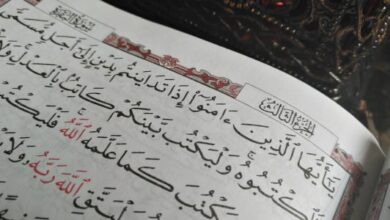 الجزء الثالث
سورة البقرة
يَٰٓأَيُّهَا ٱلَّذِينَ ءَامَنُوٓا۟ إِذَا تَدَايَنتُم بِدَيْنٍ إِلَىٰٓ أَجَلٍ مُّسَمًّى
فَٱكْتُبُوهُ وَلْيَكْتُب بَّيْنَكُمْ كَاتِبٌۢ بِٱلْعَدْلِ وَلَا
يَكْتُبَ كَمَا عَلَّمَهُ ٱللَّهُ فَلْيَكْتُبْ
وَلْيَتَّقِ ٱللَّهَ رَبَّهُۥ وَلَا